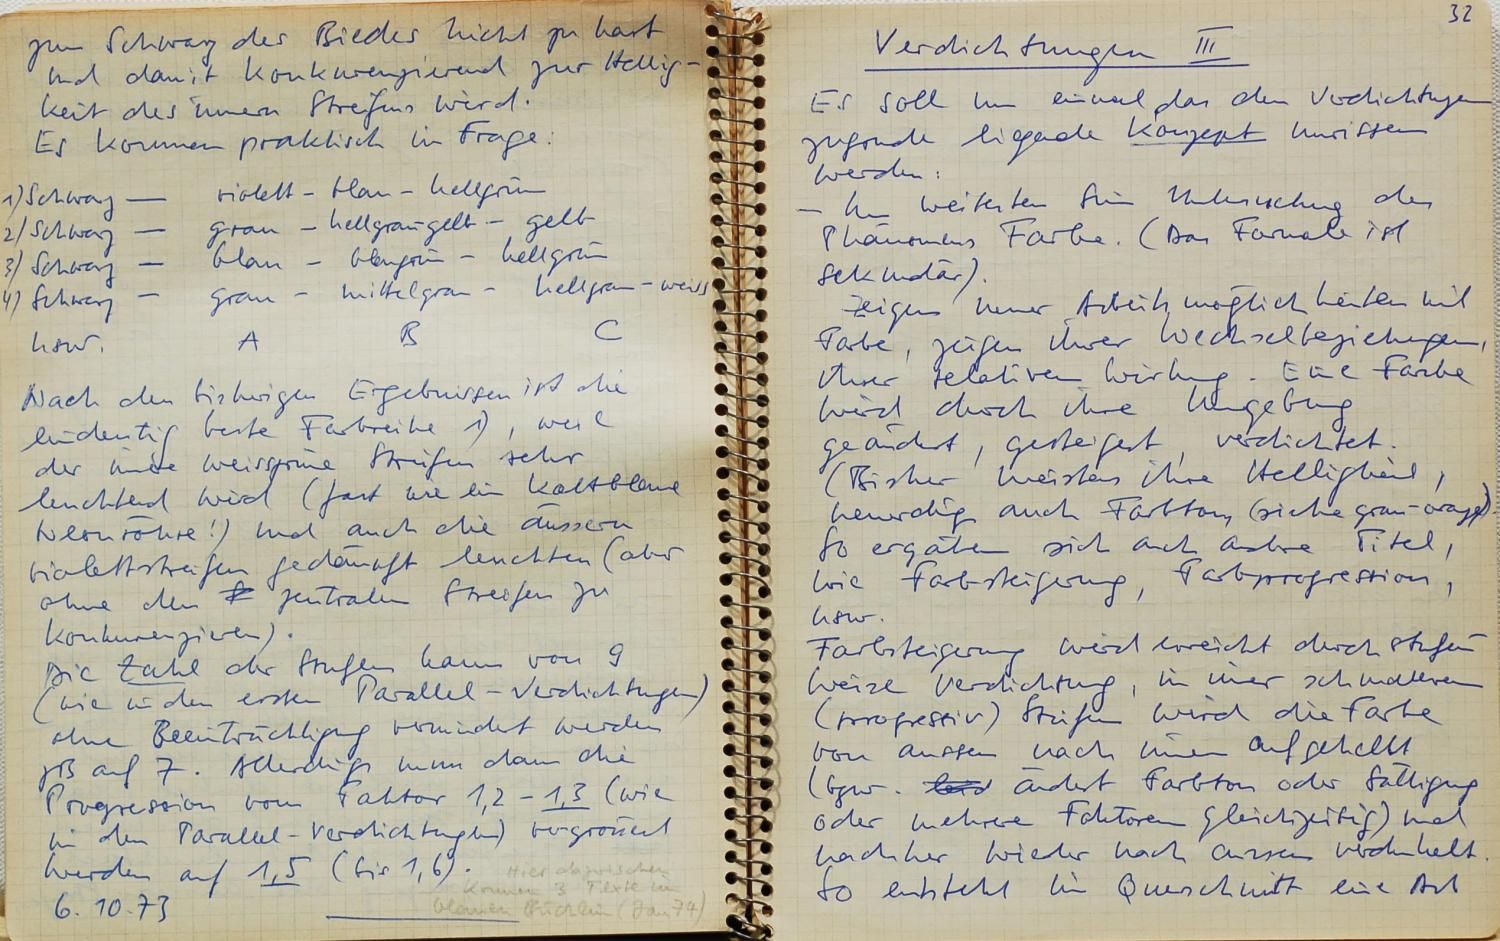 zum Schwarz des Bildes nicht zu hart
und damit konkurenzierend zur Hellig-
keit des innern Streifens wird.
Es kommen praktisch in Frage:
1) Schwarz — violett – blau – hellgrün
2) Schwarz — grau – hellgraugelb – gelb
3) Schwarz — blau – blaugrün – hellgrün
4) Schwarz – grau – mittelgrau – hellgrau – weiss
usw. A B C
Nach den bisherigen Ergebnissen ist die
eindeutig beste Farbreihe 1), weil
der innere weissgrüne Streifen sehr
leuchtend wird (fast wie ein kaltblaue
Neonröhre!) und auch die äussern
violettstreifen gedämpft leuchten (aber
ohne den zentralen Streifen zu
konkurenzieren).
Die Zahl der Stufen kann von 9
(wie in den ersten Parallel-Verdichtungen)
ohne Beeinträchtigung vermindert werden
zB auf 7. Allerdings muss dann die
Progression vom Faktor 1,2 – 1,3 (wie
in den Parallel-Verdichtungen) vergrössert
werden auf 1,5 (bis 1,6).
Hier dazwischen
kommen 3 Texte im
blauen Büchlein (Jan 74)
6. 10. 73
32
Verdichtungen III
Es soll nun einmal das den Verdichtungen
zugrunde liegende Konzept umrissen
werden:
– Im weitesten Sinn Untersuchung des
Phänomens Farbe. (Das Formale ist
sekundär).
Zeigen neuer Arbeitsmöglichkeiten mit
Farbe, zeigen ihrer Wechselbeziehungen,
ihrer relativen Wirkung. Eine Farbe
wird durch ihre Umgebung
geändert, gesteigert, verdichtet.
(Bisher meistens ihre Helligkeit,
neuerdings auch Farbton, (siehe grau-orange)
So ergäben sich auch andere Titel,
wie Farbsteigerung, Farbprogression,
usw.
Farbsteigerung wird erreicht durch stufen
weise Verdichtung, in immer schmaleren
(progressiv) Streifen wird die Farbe
von aussen nach innen aufgehellt
(bzw. ändert Farbton oder Sättigung
oder mehrere Faktoren gleichzeitig) und
nachher wieder nach aussen verdunkelt.
So entsteht im Querschnitt eine Art